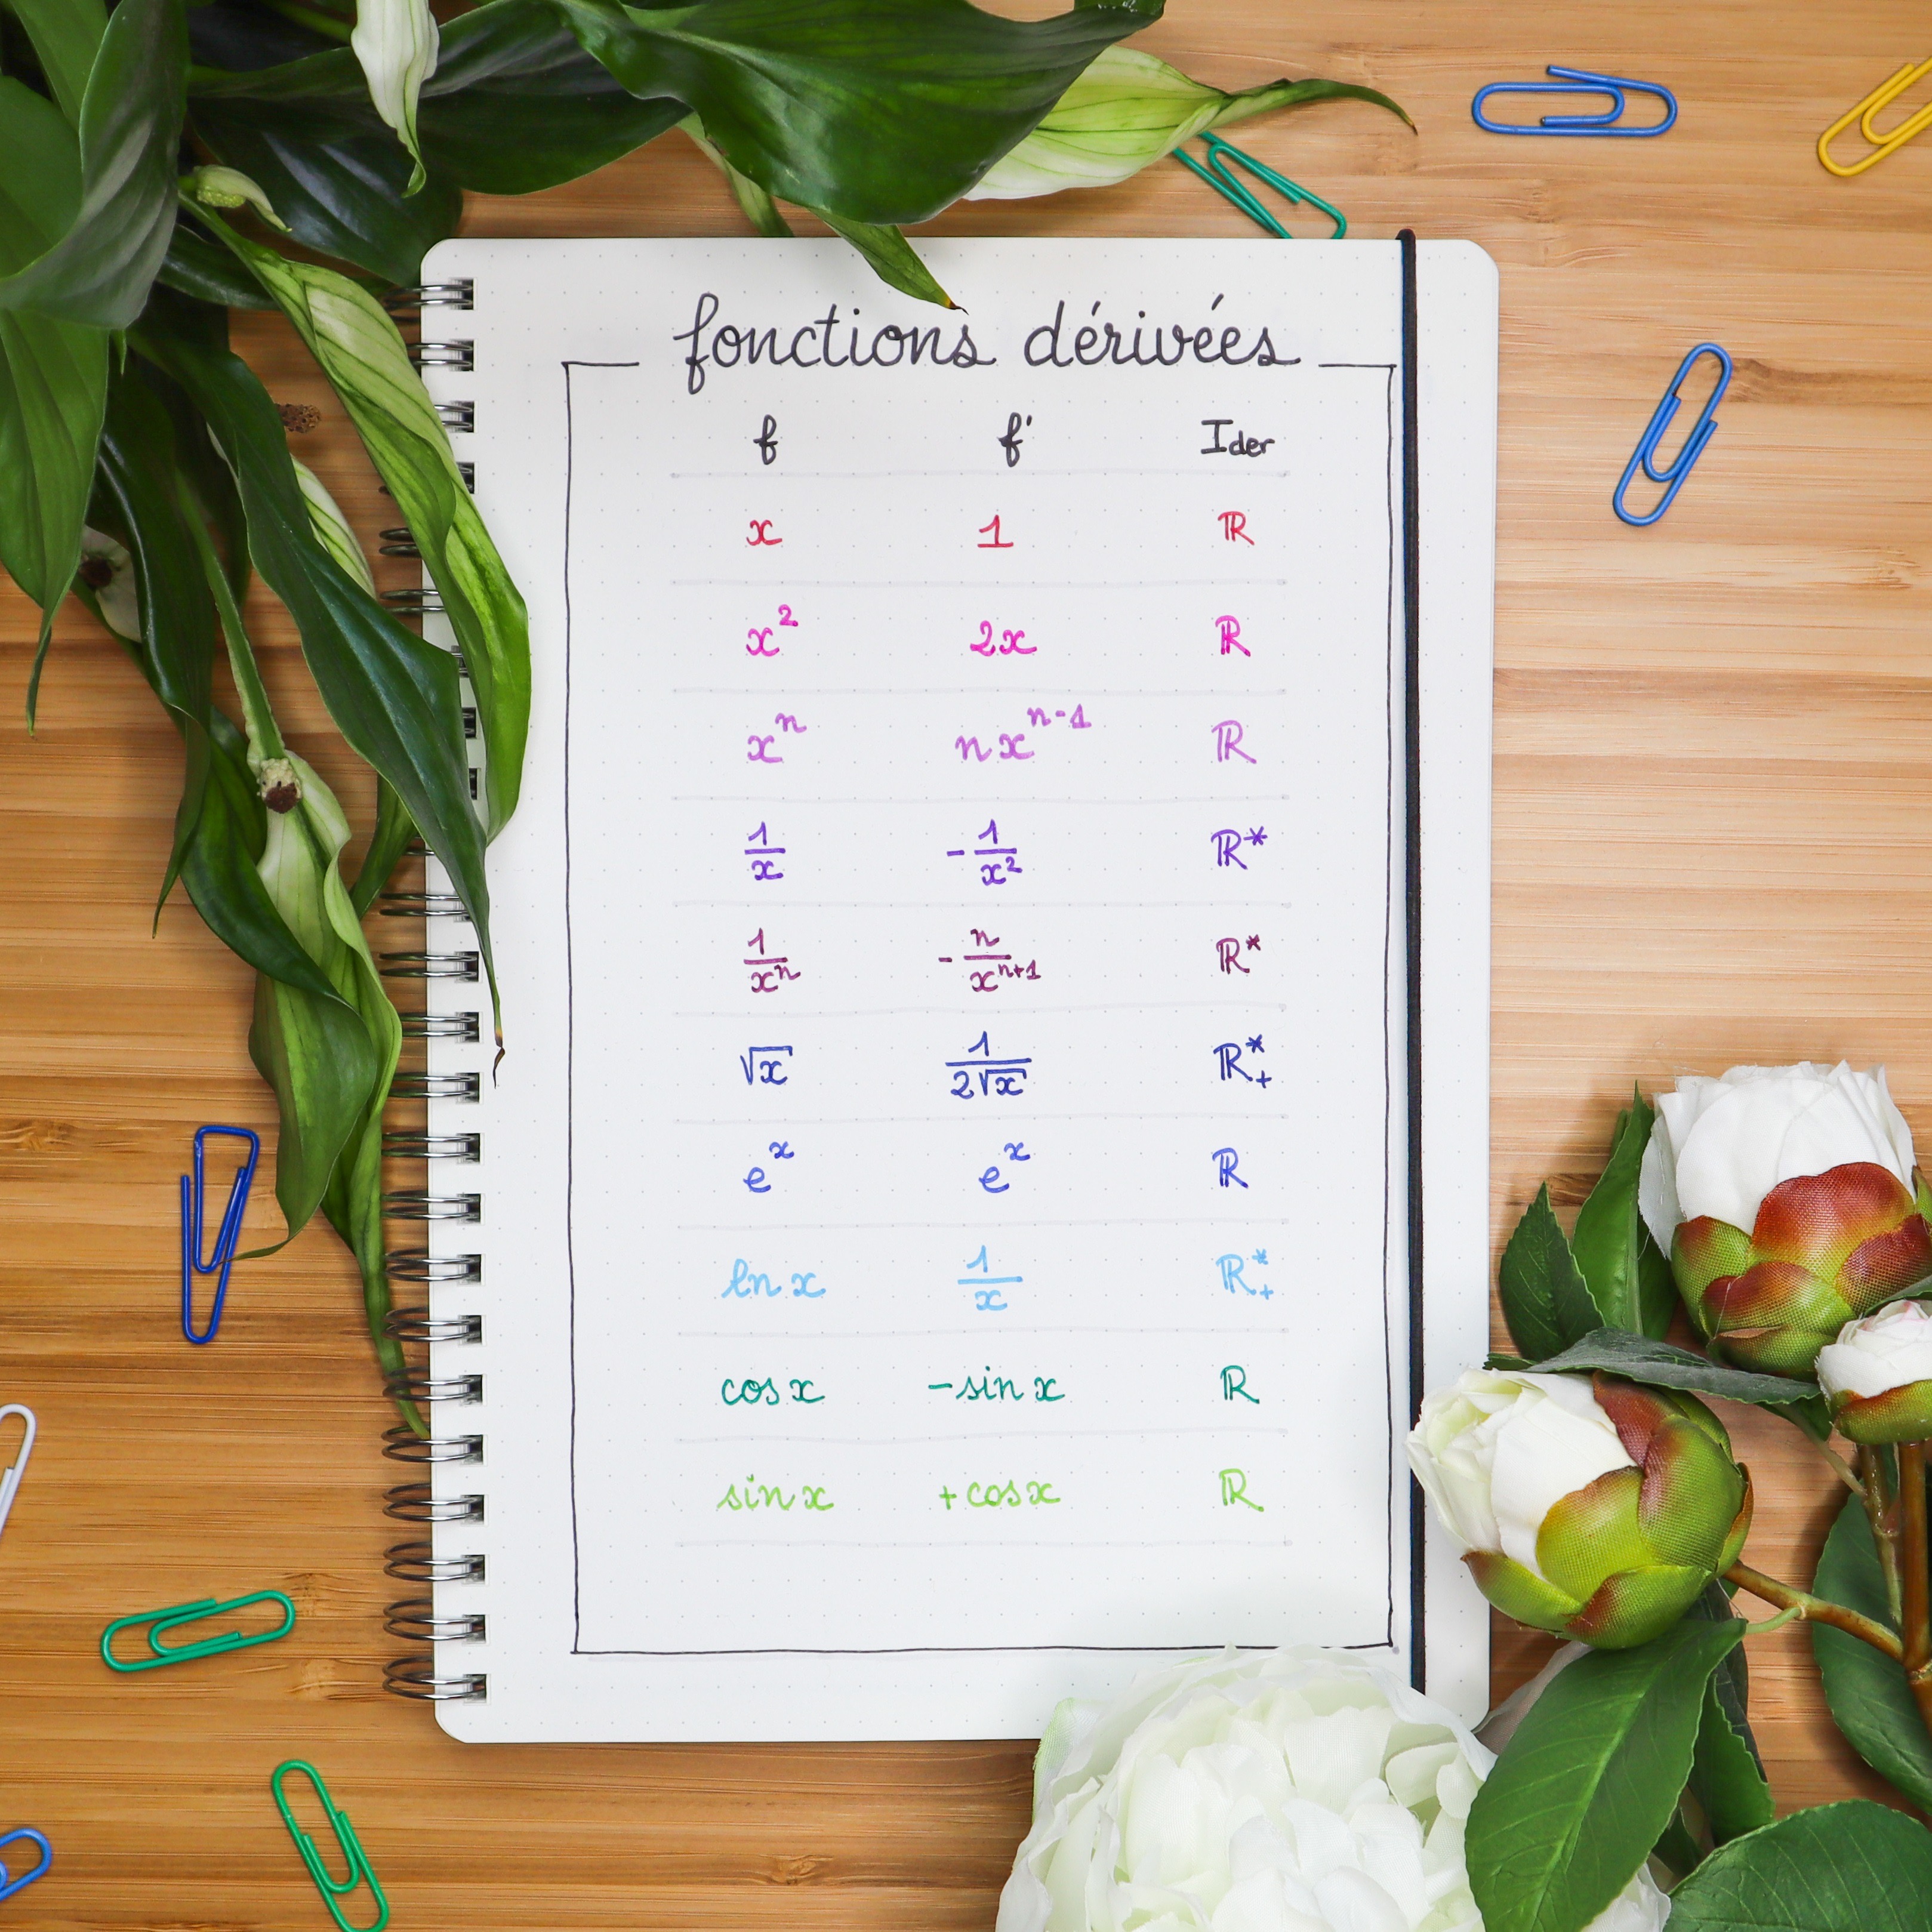 fonctions dérivées
f f' Ider
x 1 ℝ
x² 2x ℝ
xⁿ nxⁿ⁻¹ ℝ
1/x -1/x² ℝ*
1/xⁿ -n/xⁿ⁺¹ ℝ*
√x 1/(2√x) ℝ*₊
eˣ eˣ ℝ
ln x 1/x ℝ*₊
cos x -sin x ℝ
sin x +cos x ℝ